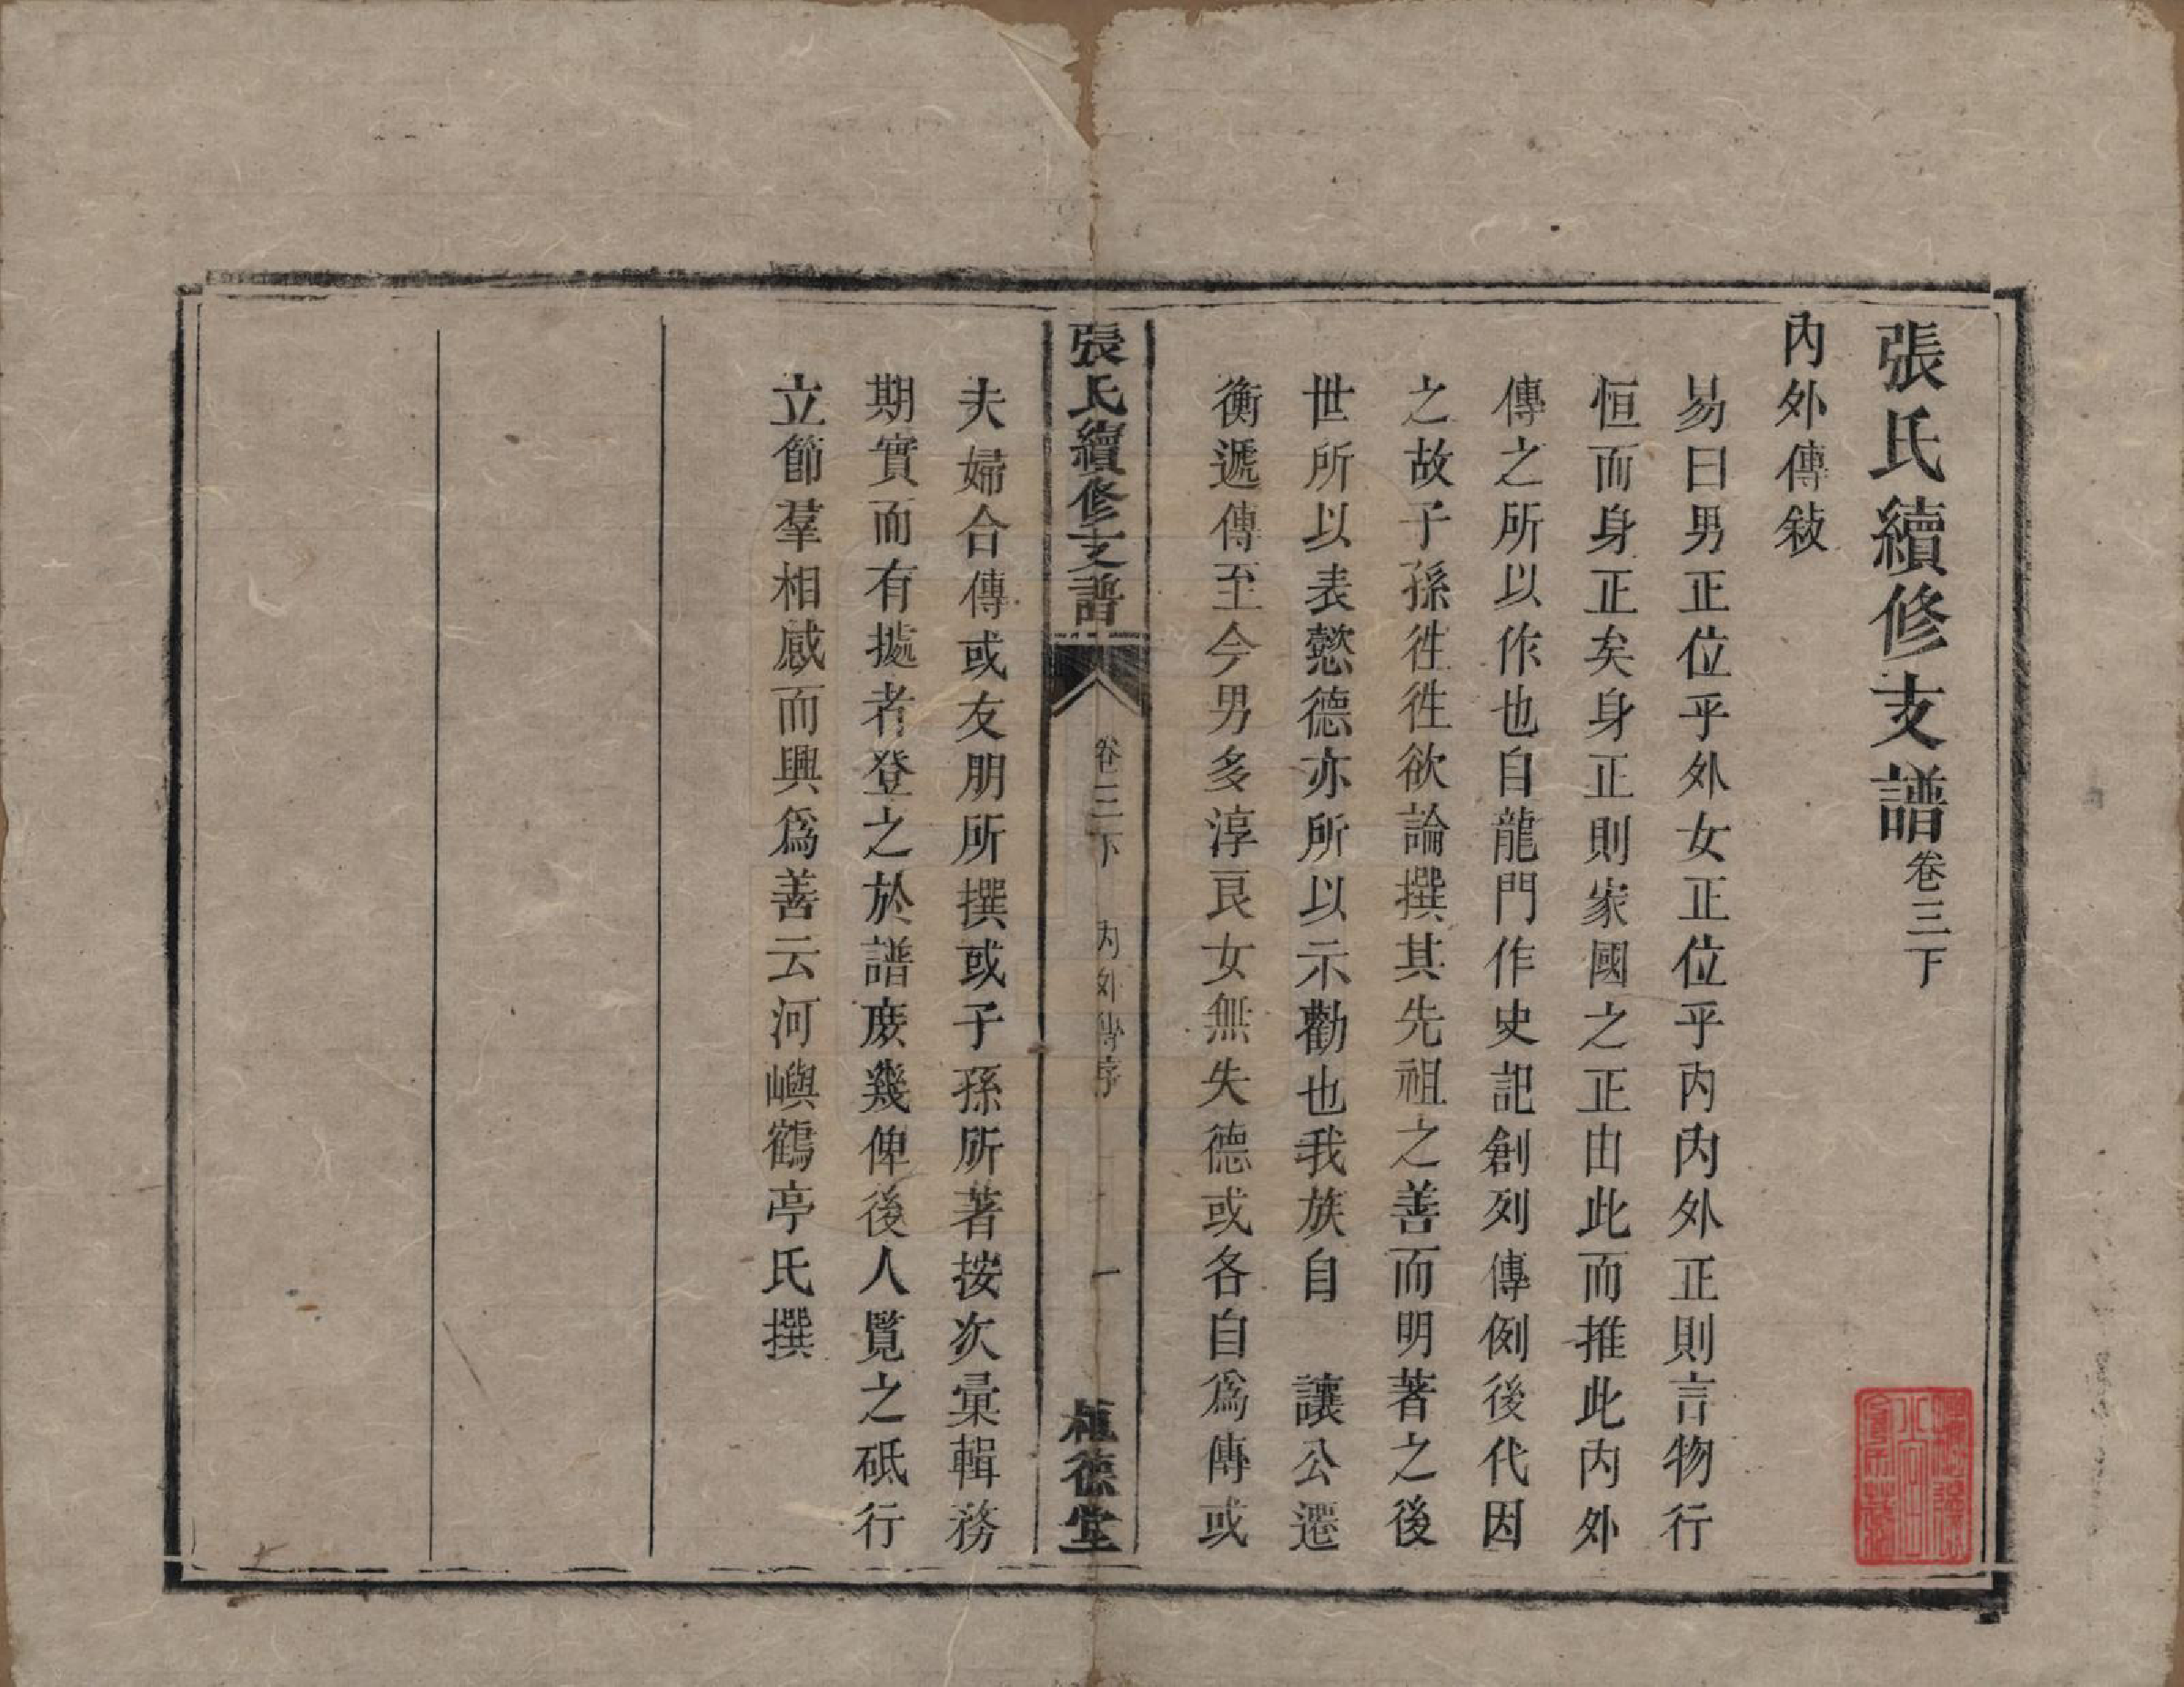 張氏續修支譜卷三下
內外傳敍
易曰男正位乎外女正位乎内内外正則言物行
恒而身正矣身正則家國之正由此而推此内外
傳之所以作也自龍門作史記創列傳例後代因
之故子孫徃徃欲論撰其先祖之善而明著之後
世所以表懿德亦所以示勸也我族自　讓公遷
衡遞傳至今男多淳良女無失德或各自爲傳或
張氏續修支譜　卷三下　内外傳序　一　植德堂
夫婦合傳或友朋所撰或子孫所著按次彙輯務
期實而有據者登之於譜庶幾俾後人覧之砥行
立節羣相感而興爲善云河嶼鶴亭氏撰